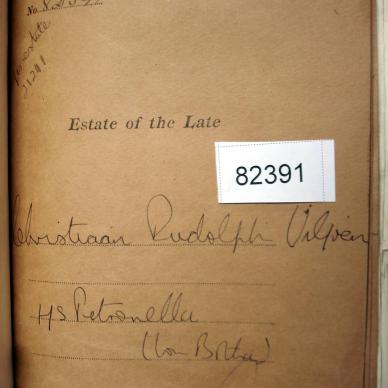 No. 82391
Estate of the Late
82391
Christiaan Rudolph Viljoen
H/S Petronella